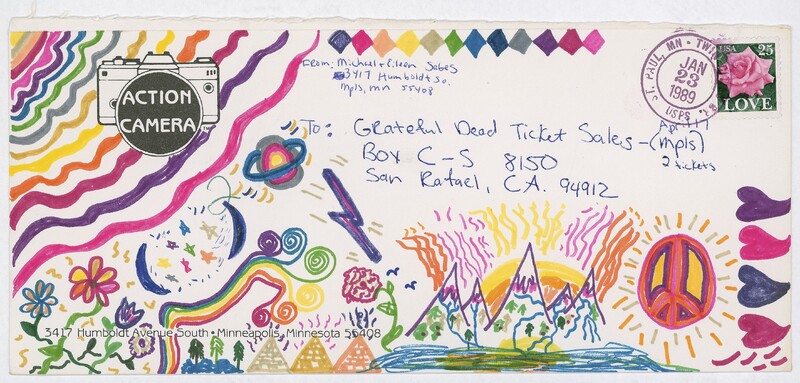 ACTION
CAMERA
From: Michael + Eileen Sabes
3417 Humboldt So.
Mpls, MN 55408
ST. PAUL, MN • TWIN
JAN
23
1989
USPS
USA 25
LOVE
To: Grateful Dead Ticket Sales - (Mpls)
April 17
Box C-S 8150
2 tickets
San Rafael, CA. 94912
3417 Humboldt Avenue South • Minneapolis, Minnesota 55408